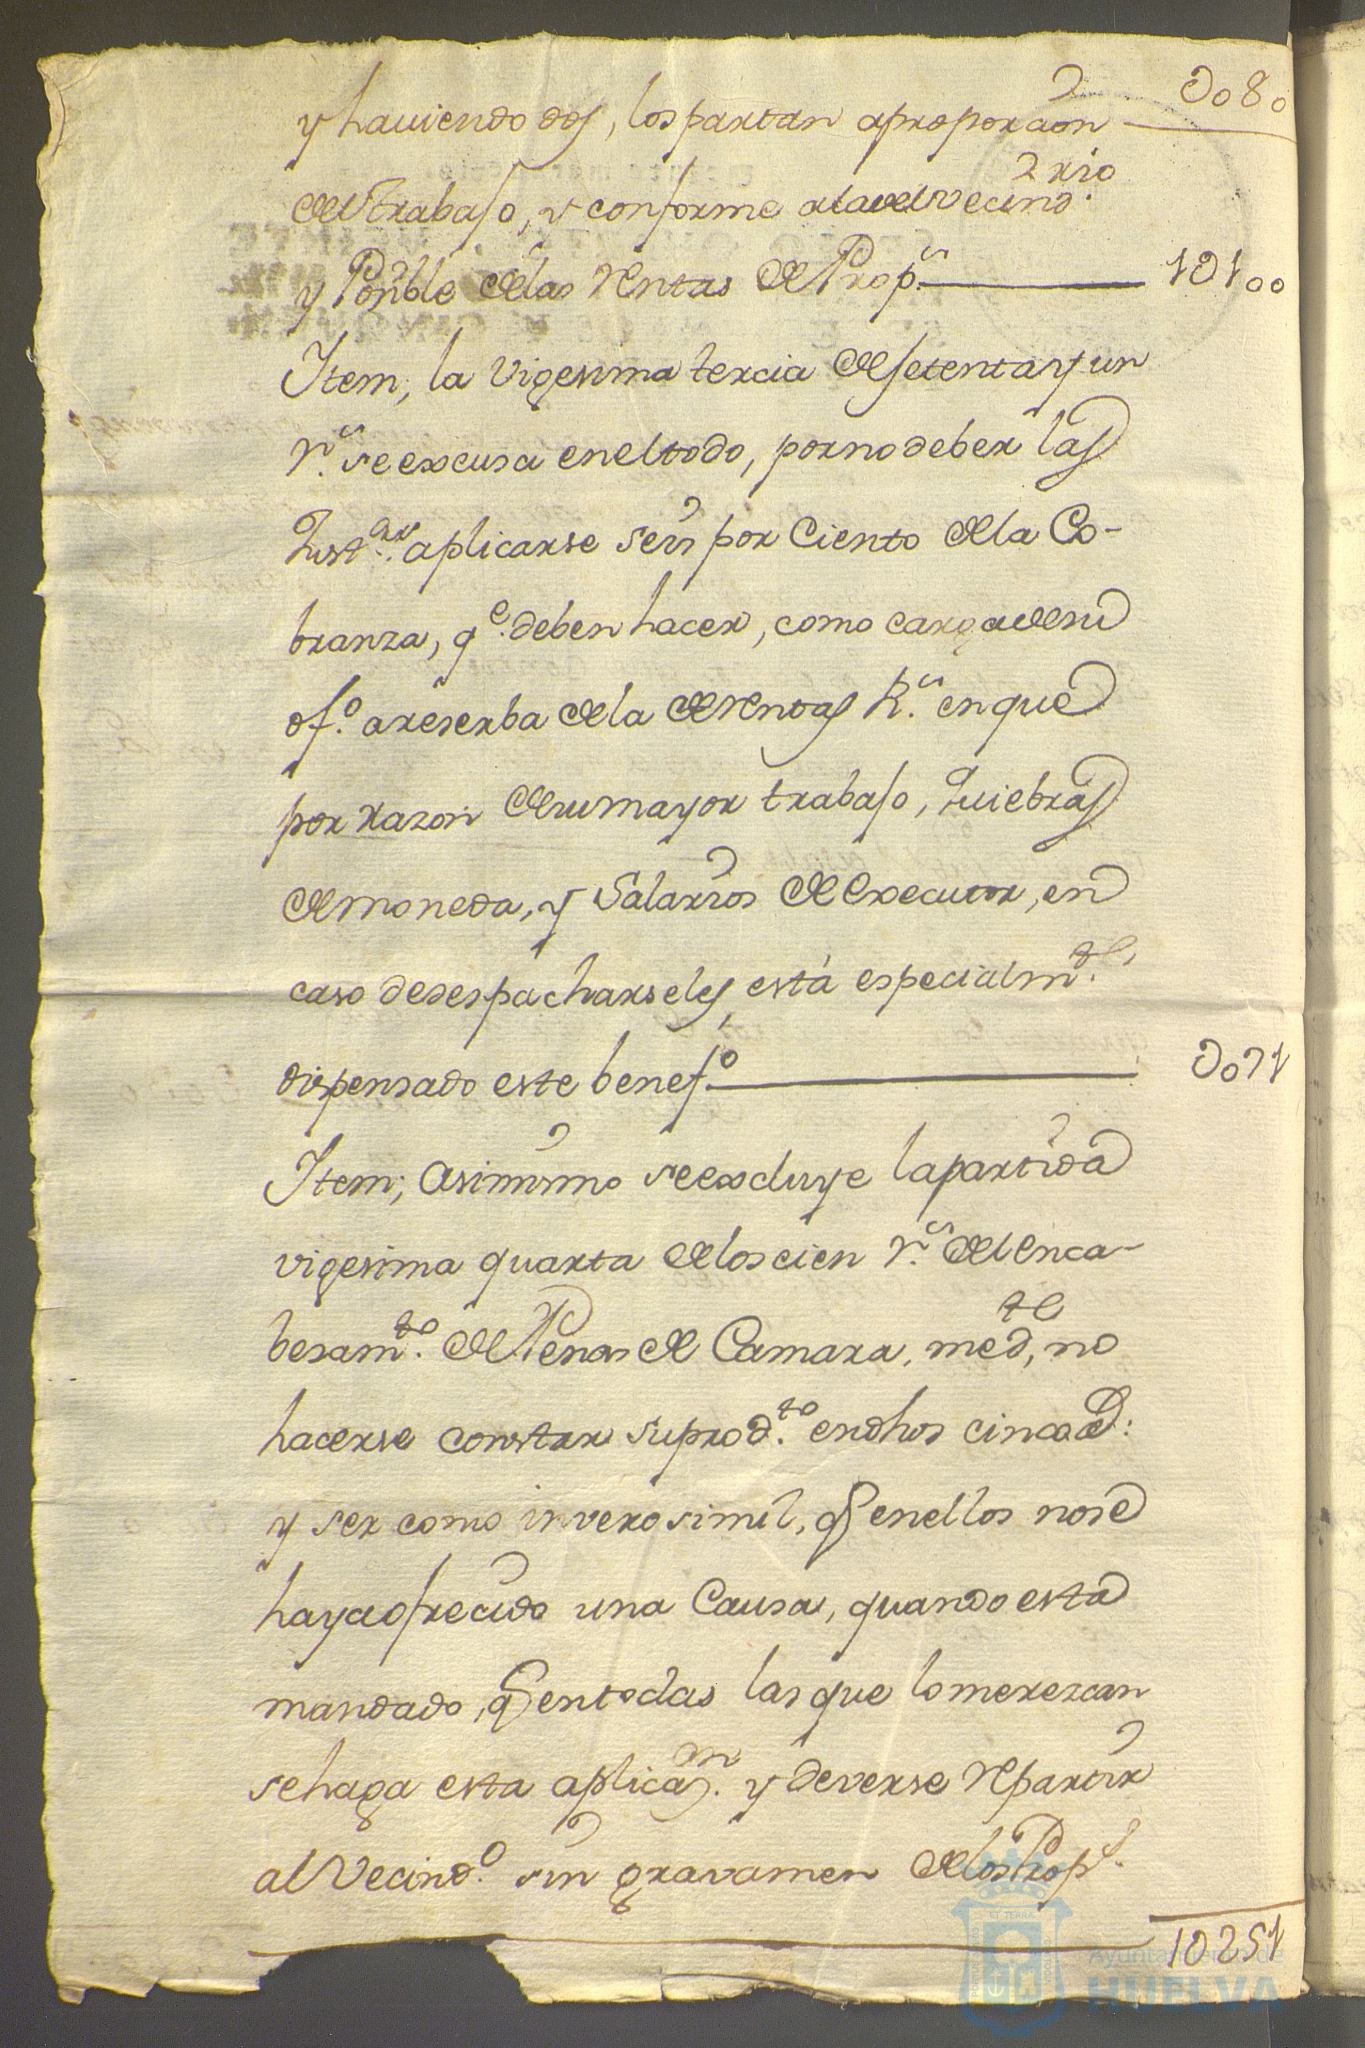 y haviendo dos, los partan a proporcion ᘐ080
del trabajo, y conforme a la del vecindrio
y Ponble de las Rentas de Prop.s 1ᘐ100
Item, la vigesima tercia de setenta y un
r.s se excusa en el todo, por no deber las
Just.as aplicarse seis por Ciento de la Co-
branza, q.e deben hacer, como cargo de su
of.o a reserba de la de Rentas R.s en que
por razon de su mayor trabajo, Quiebras
de moneda, y Salarios de Executor, en
caso de despacharseles, está especialm.te
dispensado este benef.o ᘐ071
Item; asimismo se excluye la partida
vigesima quarta de los cien r.s del Enca-
besam.to de Penas de Camara, medte, no
hacerse constar su prod.to en dhos cinco a.s:
y ser como inverosimil, q en ellos no se
haya ofrecido una Causa, quando está
mandado, q en todas las que lo merezcan
se haga esta aplicaon. y deverse repartir
al Vecind.o sin gravamen de los Prop.s
1ᘐ251
Ayuntamiento de
HUELVA